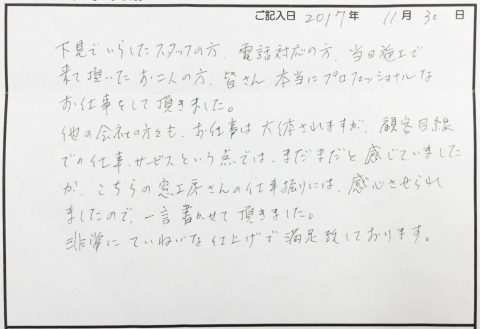 ご記入日 2017年 11月 30日
下見でいらしたスタッフの方、電話対応の方、当日施工で
来て頂いたお二人の方、皆さん本当にプロフェッショナルな
お仕事をして頂きました。
他の会社の方々とも、お仕事は大体されますが、顧客目線
での仕事、サービスという点では、まだまだと感じていました
が、こちらの窓工房さんの仕事振りには、感心させられ
ましたので、一言書かせて頂きました。
非常にていねいな仕上げで満足致しております。